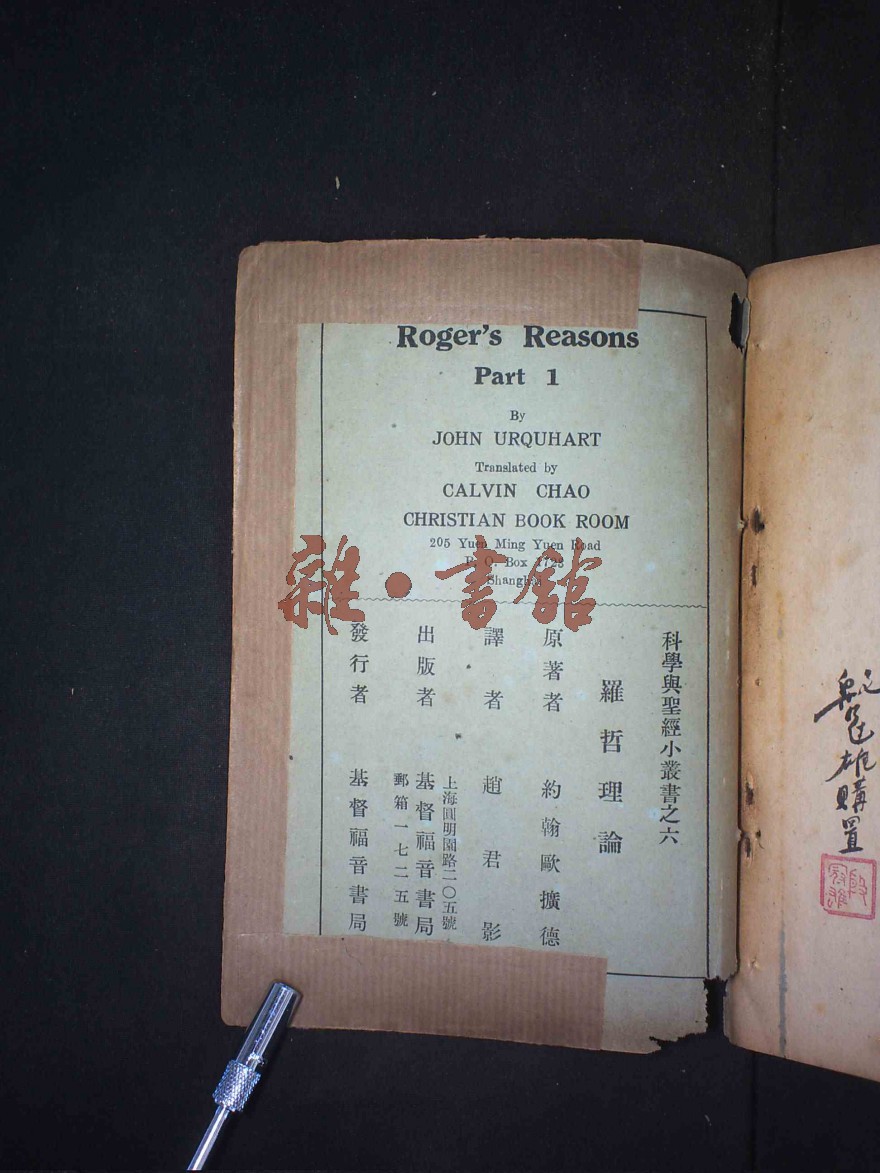 Roger's Reasons
Part 1
By
JOHN URQUHART
Translated by
CALVIN CHAO
CHRISTIAN BOOK ROOM
205 Yuen Ming Yuen Road
P. O. Box 1725
Shanghai
雜·書館
科學與聖經小叢書之六
羅哲理論
原著者 約翰歐擴德
譯者 趙君影
上海圓明園路二〇五號
出版者 基督福音書局
郵箱一七二五號
發行者 基督福音書局
雄購置